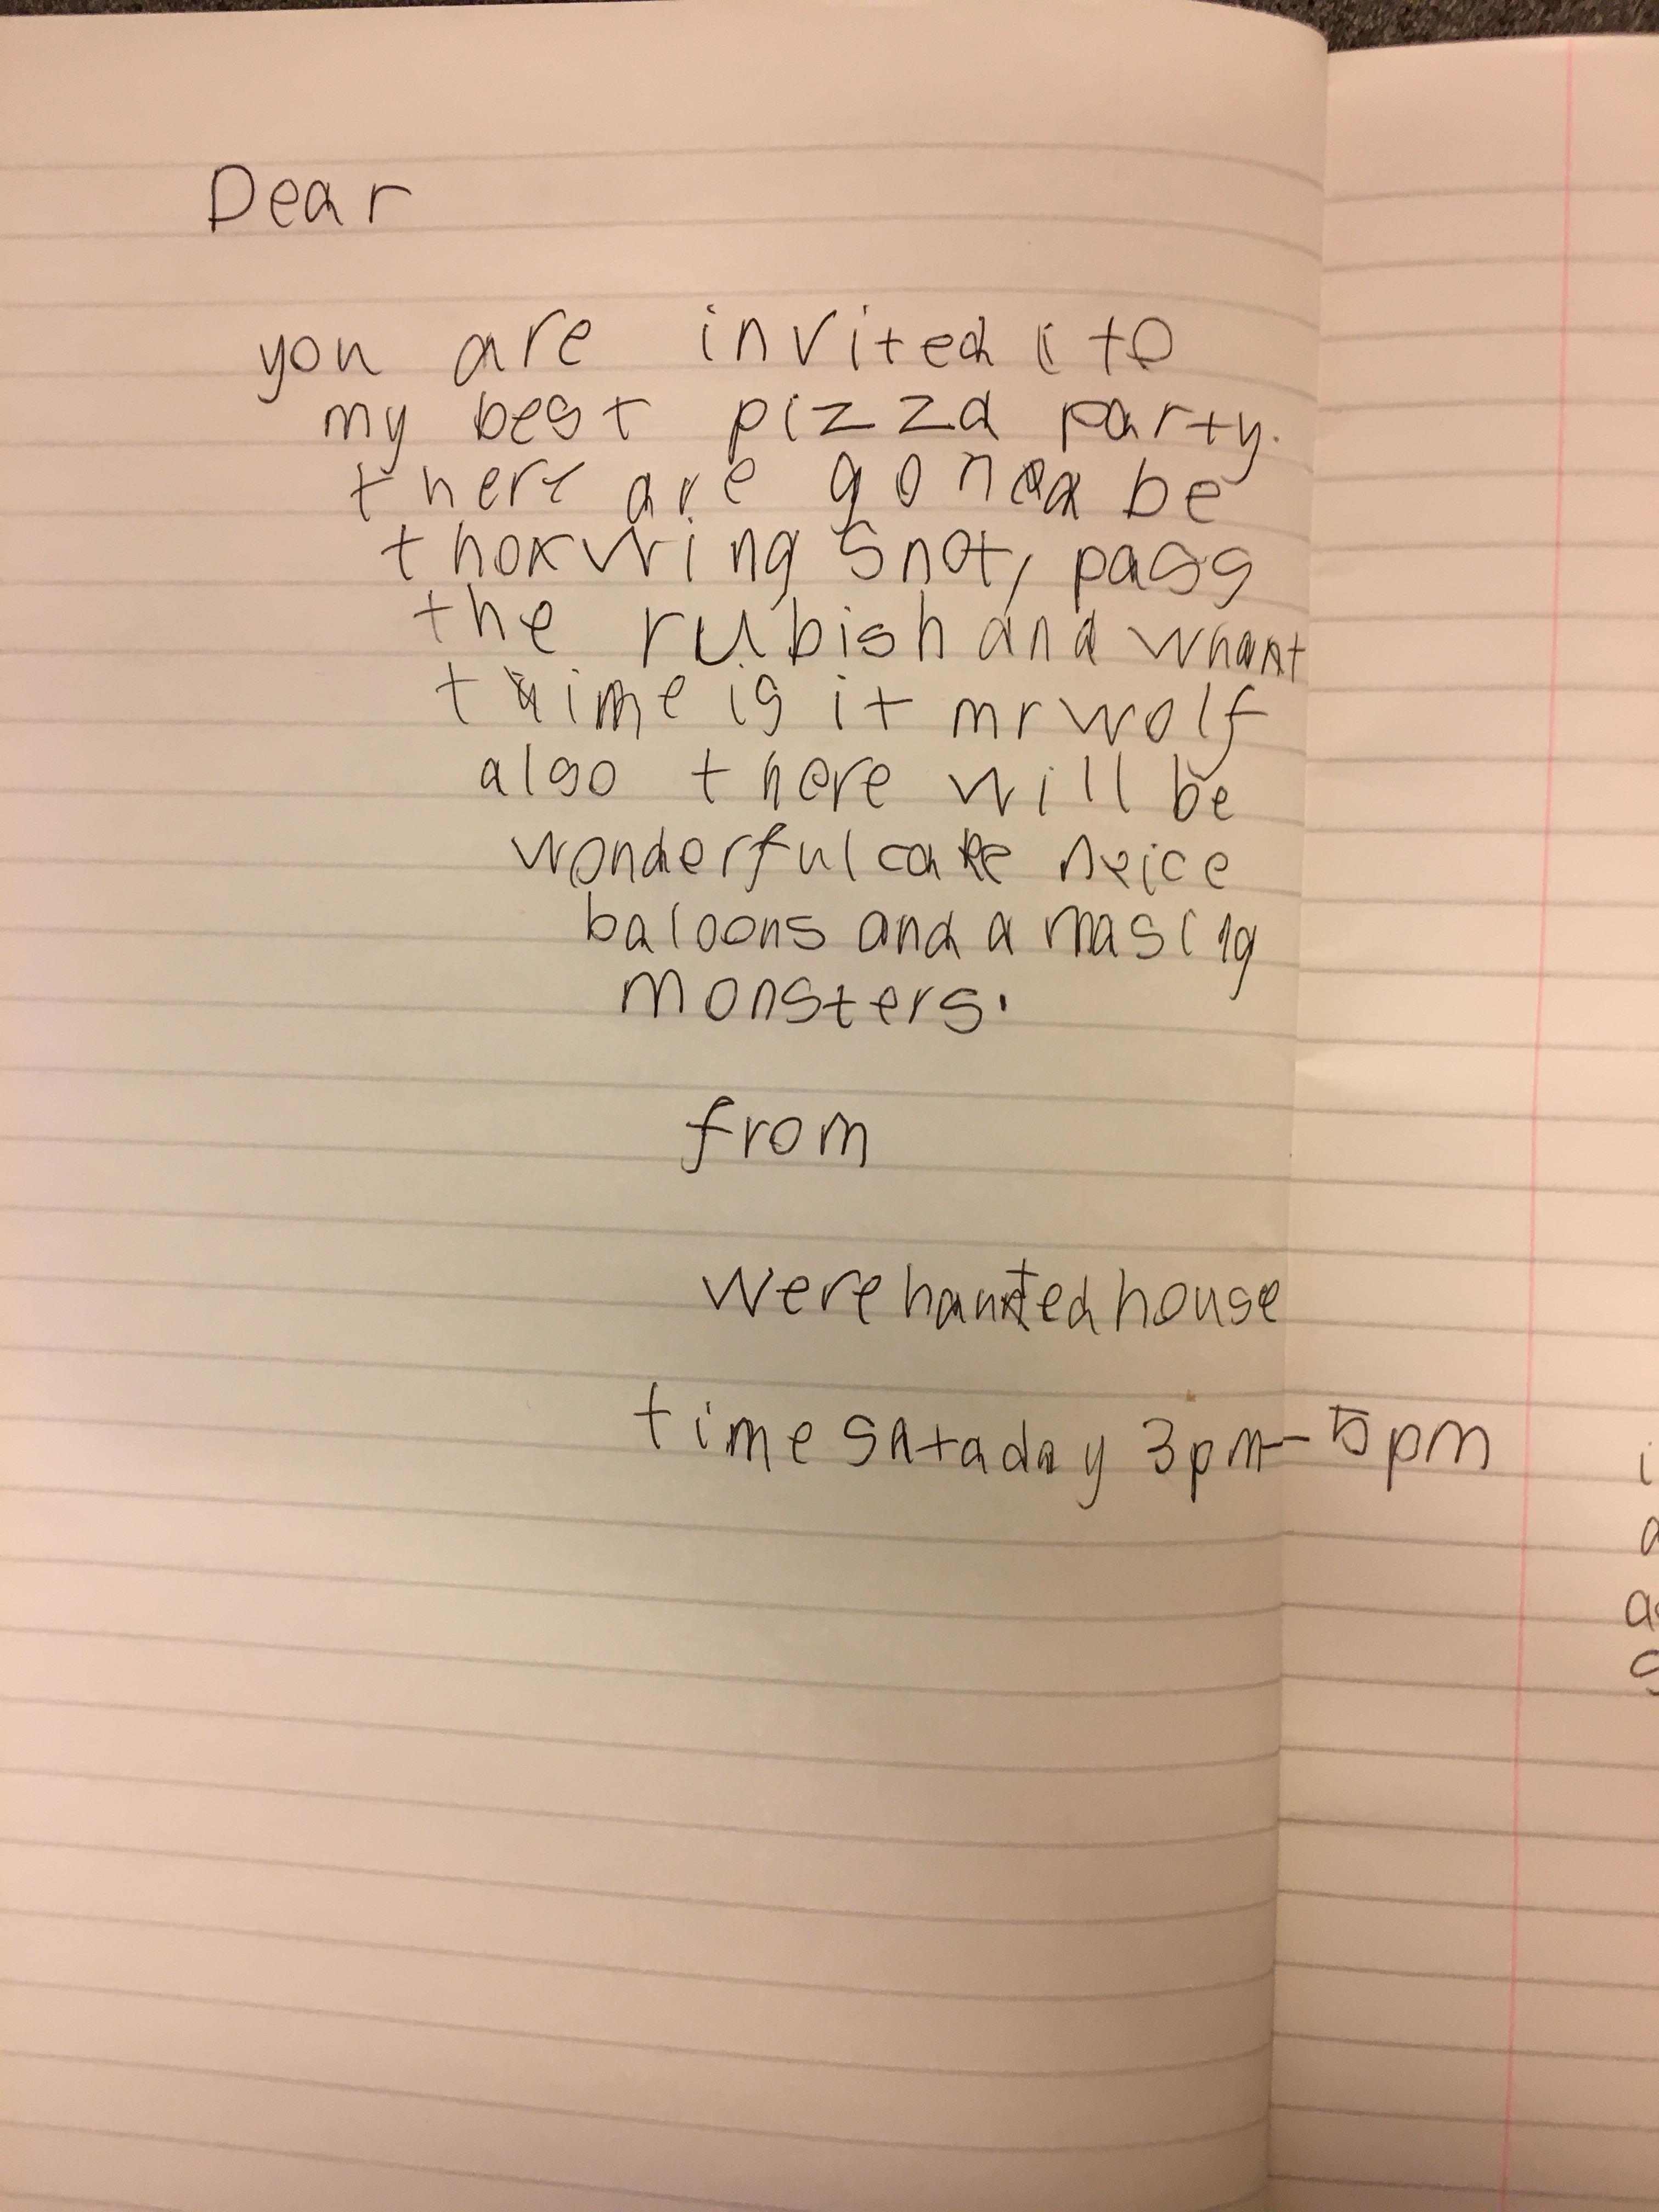 Dear
you are invited to
my best pizza party.
there are gonna be
thowring snot, pass
the rubish and what
time is it mr wolf
also there will be
wonderful cake neice
baloons and a masing
monsters.
from
were haunted house
time sataday 3pm-5pm
i
a
as